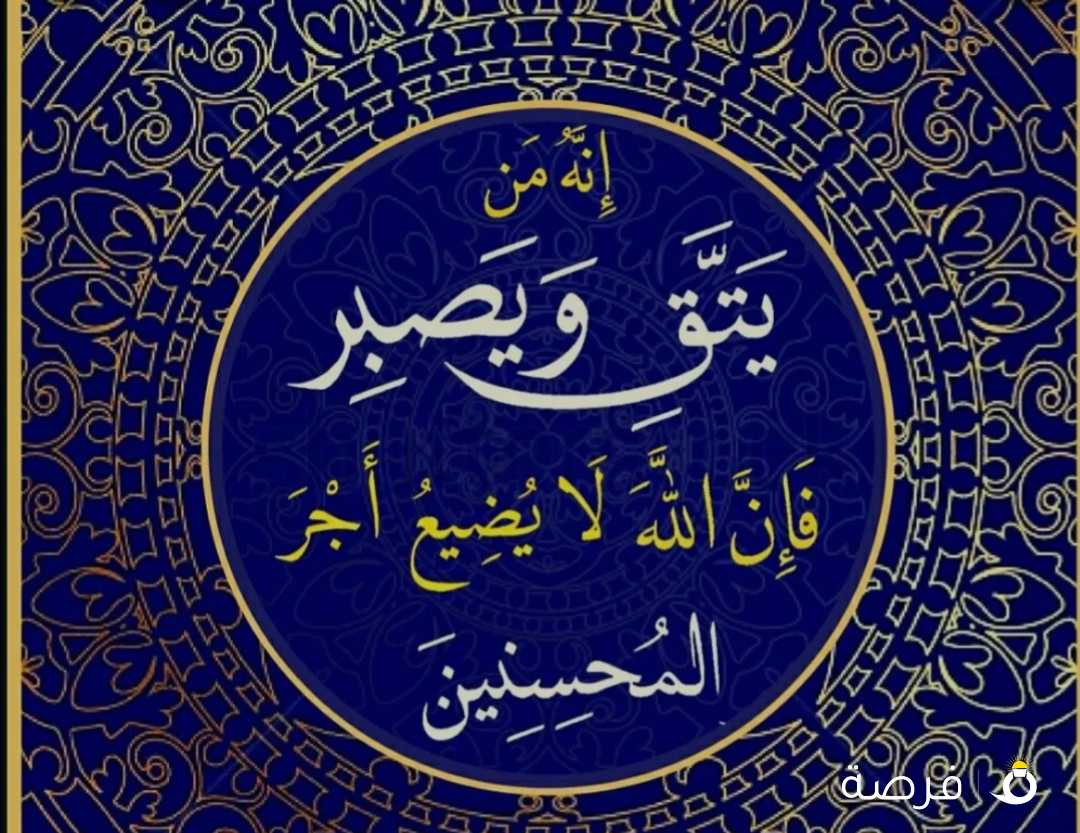 إِنَّهُ مَن
يَتَّقِ وَيَصبِر
فَإِنَّ اللَّهَ لَا يُضِيعُ أَجْرَ
المُحسِنِينَ
فرصة